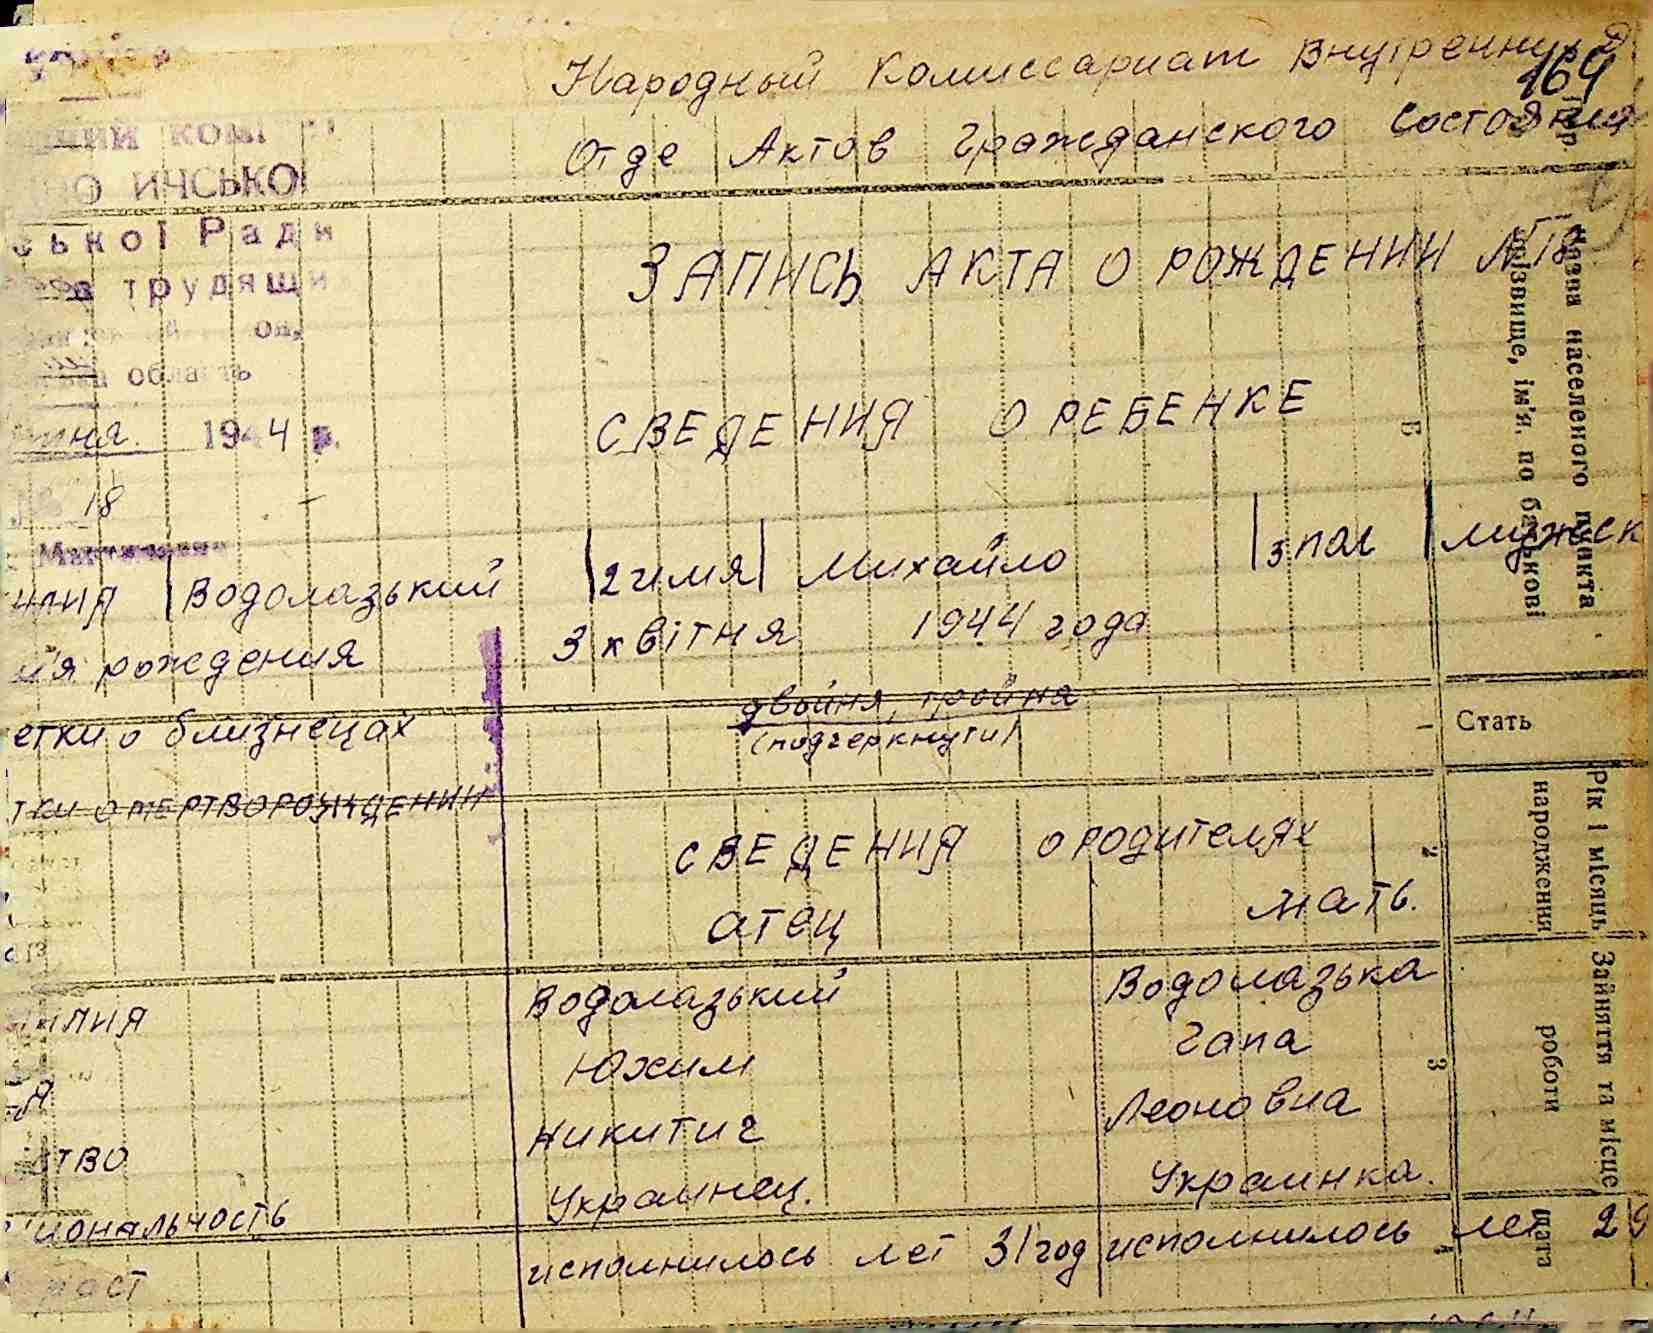 Народный Комиссариат Внутренних Д
164
Отде Актов Гражданского Состояния
ИЧСЬКОЇ
ської Ради
трудящи
область
1944 р.
№ 18
ЗАПИСЬ АКТА О РОЖДЕНИИ № 18
СВЕДЕНИЯ О РЕБЕНКЕ
илия Водолазький 2 имя Михайло 3 пол мужск
рождения 3 квітня 1944 года
етки о близнецах двойня, тройня
(подчеркнути)
тки о мертворождении
СВЕДЕНИЯ о родителях
атец мать.
илия Водолазький Водолазька
Юхим Гапа
ство Никитич Леоновна
иональность Украинец. Украинка.
раст исполнилось лет 31 год исполнилось лет 29
Назва населеного пункта
Прізвище, ім'я, по батькові
Б
Стать
1
Рік і місяць
народження
2
Заняття та місце
роботи
3
4